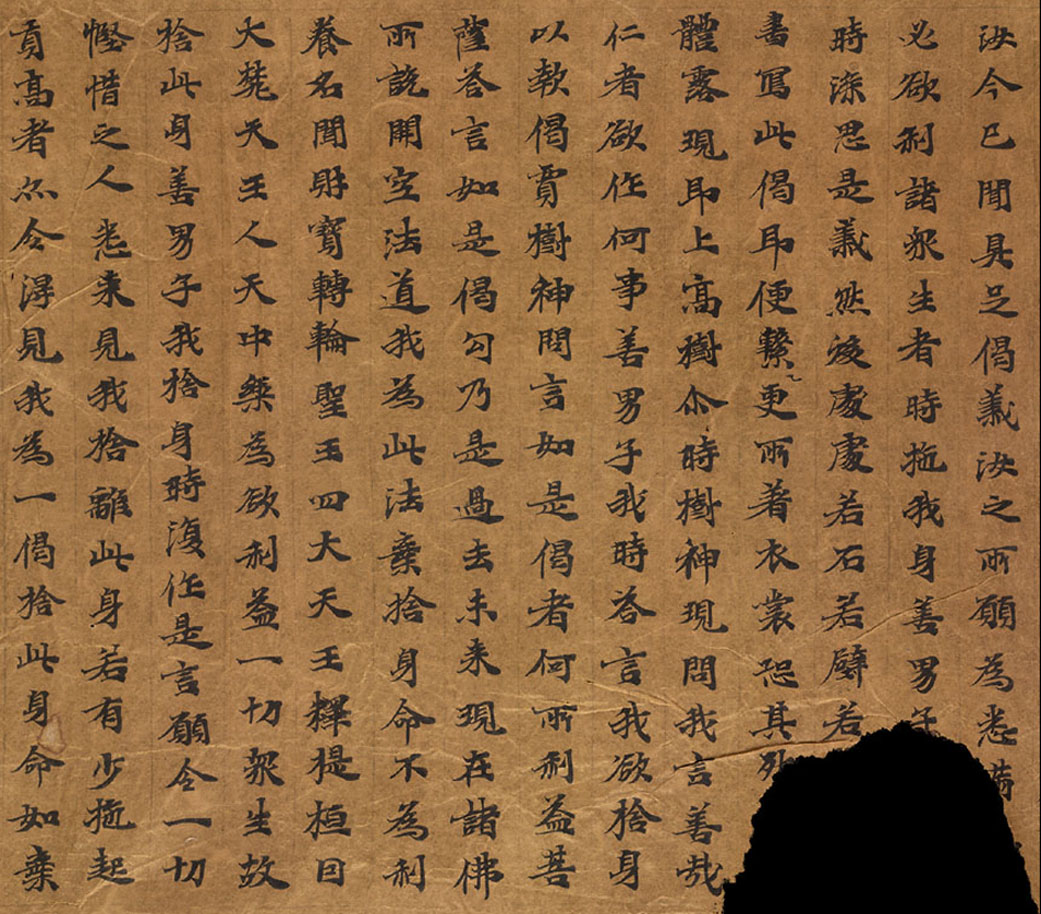 汝今已聞具足偈義汝之所願為悉満
必欲利諸衆生者時捨我身善男子
時深思是義然後處處若石若辟若
書寫此偈即便繫更所著衣裳恐其死
體露現即上高樹尒時樹神現問我言善哉
仁者欲作何事善男子我時荅言我欲捨身
以報偈賈樹神問言如是偈者何所利益菩
薩荅言如是偈句乃是過去未来現在諸佛
所說開空法道我為此法棄捨身命不為利
養名聞財寳轉輪聖王四大天王釋提桓曰
大梵天王人天中樂為欲利益一切衆生故
捨此身善男子我捨身時復作是言願令一切
慳惜之人悉来見我捨離此身若有少施起
貢髙者亦令淂見我為一偈捨此身命如棄